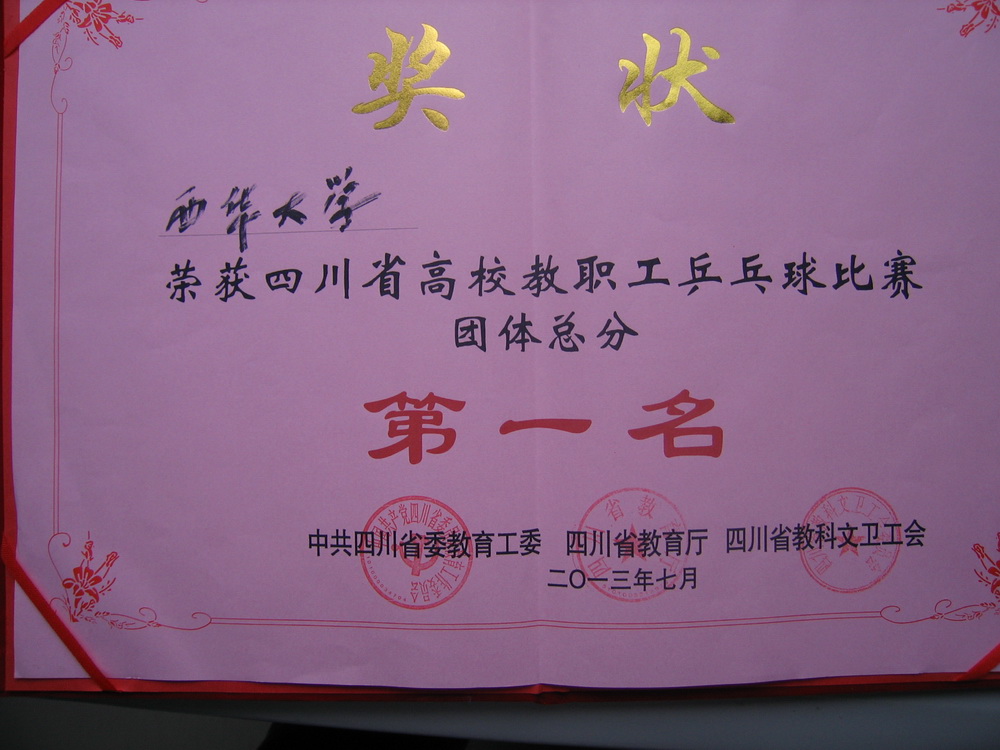 奖状
西华大学
荣获四川省高校教职工乒乓球比赛
团体总分
第一名
中共四川省委教育工委 四川省教育厅 四川省教科文卫工会
二〇一三年七月